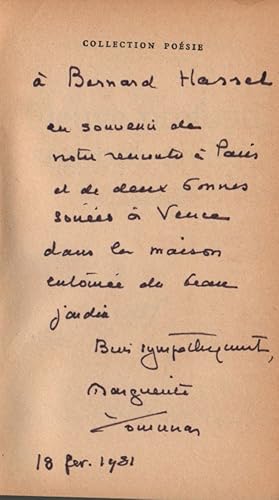 COLLECTION POÉSIE
à Bernard Hassel
en souvenir de
notre rencontre à Paris
et de deux bonnes
soirées à Vence
dans la maison
entourée du beau
jardin
Bien sympathiquement,
Marguerite
Yourcenar
18 fev. 1981